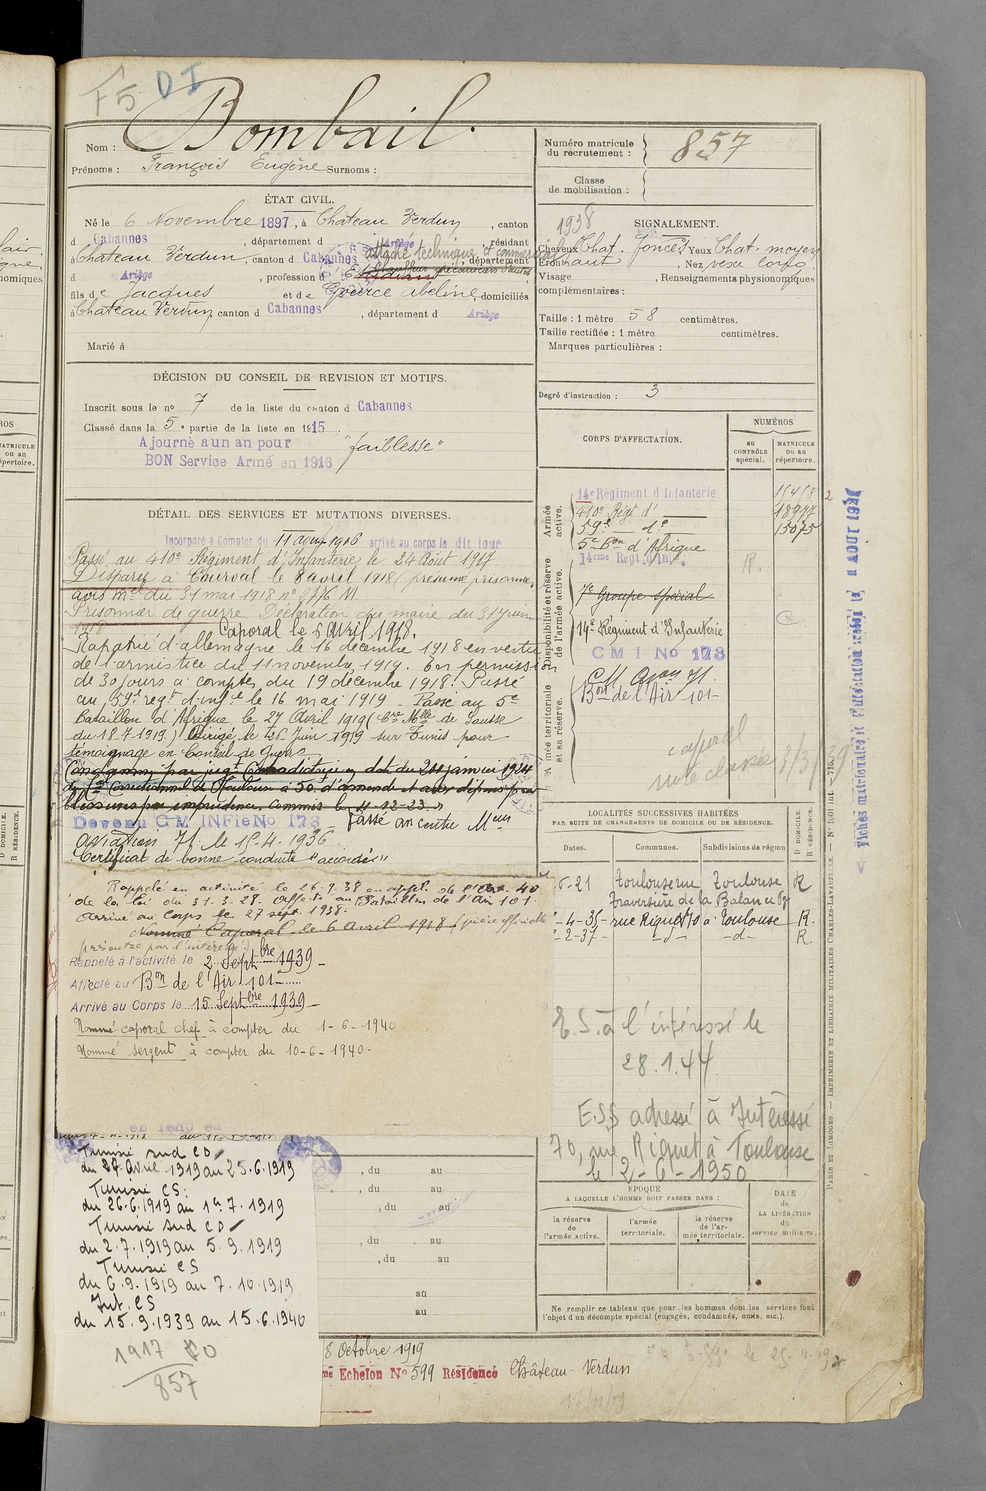 F5 DI
Bombail
Nom :
Prénoms : François Eugène Surnoms :
Numéro matricule du recrutement : 857
Classe de mobilisation :
1938
ÉTAT CIVIL.
Né le 6 Novembre 1897, à Chateau Verdun, canton
d Cabannes, département d Ariège, résidant
à Chateau Verdun, canton d Cabannes, département
attaché technique et commercial
d Ariège, profession d
fils de Jacques et de Gource Abeline, domiciliés
à Chateau Verdun, canton d Cabannes, département d Ariège
Marié à
SIGNALEMENT.
Cheveux Chat. foncés Yeux Chat. moyen
Front haut, Nez vexe long
Visage, Renseignements physionomiques
complémentaires :
Taille : 1 mètre 58 centimètres.
Taille rectifiée : 1 mètre centimètres.
Marques particulières :
Degré d'instruction : 3
DÉCISION DU CONSEIL DE REVISION ET MOTIFS.
Inscrit sous le no 7 de la liste du canton d Cabannes
Classé dans la 5e partie de la liste en 1915.
Ajourné a un an pour "faiblesse"
BON Service Armé en 1916
DÉTAIL DES SERVICES ET MUTATIONS DIVERSES.
Incorporé à Compter du 11 août 1916 arrivé au corps le dit jour
Passé au 410e Régiment d'Infanterie le 24 Août 1917
Disparu à Thurval le 8 avril 1918 (présumé prisonnier,
avis mel du 31 mai 1918 no 2776 M.
Prisonnier de guerre Déclaration du maire du 31 Juin
1918 Caporal le 6 Avril 1918.
Rapatrié d'allemagne le 16 décembre 1918 en vertu
de l'armistice du 11 novembre 1919. En permission
de 30 jours à compter du 19 décembre 1918. Passé
au 59e régt d'infie le 16 mai 1919 - Passé au 5e
Bataillon d'Afrique le 27 Avril 1919 (Cre Mlle de Sousse
du 18-7-1919.) Dirigé le 26 Juin 1919 sur Tunis pour
témoignage en Conseil de Guerre
Condamné par jugt Contradictoire en dat du 24 janvier 1924
Correctionnel de Toulouse à 50 d'amende et aux dépens pour
blessures par imprudence. Commis le 4-12-23.
Devenu C.M. INFie No 173 Passé au centre Meur
aviation 71 le 15-4-1936
Certificat de bonne conduite "accordé"
Rappelé en activité le 26-9-38 en appl. de l'Art. 40
de la loi du 31-3-28. Affecté au Bataillon de l'Air 101.
Arrivé au Corps le 27 sept. 1938.
Nommé Caporal le 6 Avril 1918 (pièce officielle
présentée par l'intéressé.)
Rappelé à l'activité le 2 Septbre 1939 -
Affecté au Bon de l'Air 101
Arrivé au Corps le 15 Septbre 1939 -
Nommé caporal chef à compter du 1-6-1940
Nommé sergent à compter du 10-6-1940.
CORPS D'AFFECTATION.
NUMÉROS
au CONTRÔLE spécial.
MATRICULE ou au répertoire.
Armée active.
14e Régiment d'Infanterie
410e Régt d'
59e d°
5e Bon d'Afrique
18977
15075
Disponibilité et réserve de l'armée active.
14eme Regt d'Infie.
7e Groupe spécial
14e Régiment d'Infanterie
C M I No 173
Armée territoriale et sa réserve.
Bon de l'Air 101
caporal
LOCALITÉS SUCCESSIVES HABITÉES
PAR SUITE DE CHANGEMENTS DE DOMICILE OU DE RÉSIDENCE.
Dates. Communes. Subdivisions de région. D DOMICILE. R RÉSIDENCE.
-21 Toulouse rue Toulouse R
Traversière de la Balance
-4-35- rue Riquet 70 à Toulouse R.
-2-37- -d- -d- R.
E.S. à l'intéressé le
28.1.44
E.S.S adressé à Intéressé
70, rue Riquet à Toulouse
le 2-6-1950
Tunisie sud CD
du 27 Avril 1919 au 25.6.1919
Tunisie CS.
du 26.6.1919 au 1er 7.1919
Tunisie sud CD
du 2.7.1919 au 5.9.1919
Tunisie CS
du 6.9.1919 au 7.10.1919
Int. CS
du 15.9.1939 au 15.6.1940
1917
857
, du au
, du au
, du au
, du au
, du au
au
au
ÉPOQUE
A LAQUELLE L'HOMME DOIT PASSER DANS :
la réserve de l'armée active.
l'armée territoriale.
la réserve de l'armée territoriale.
DATE de LA LIBÉRATION du service militaire.
Ne remplir ce tableau que pour les hommes dont les services font
l'objet d'un décompte spécial (engagés, condamnés, omis, etc.).
8 Octobre 1919
Echelon No 599 Résidence Château-Verdun
PARIS ET LIMOGES. — IMPRIMERIE ET LIBRAIRIE MILITAIRES CHARLES-LAVAUZELLE.